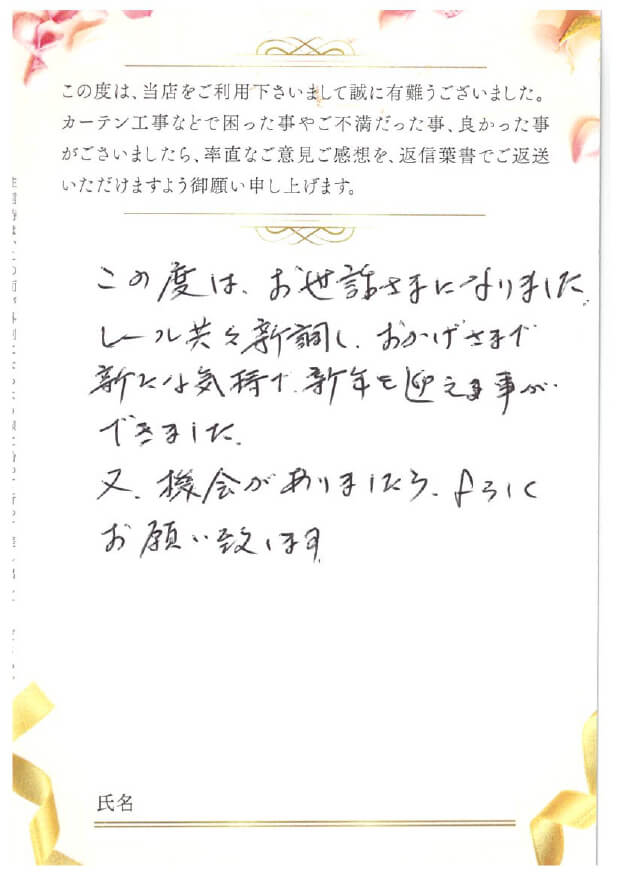 この度は、当店をご利用下さいまして誠に有難うございました。
カーテン工事などで困った事やご不満だった事、良かった事
がございましたら、率直なご意見ご感想を、返信葉書でご返送
いただけますよう御願い申し上げます。
この度は、お世話さまになりました。
レール共々新調し、おかげさまで
新たな気持で、新年を迎える事が
できました。
又、機会がありましたら、よろしく
お願い致します
氏名